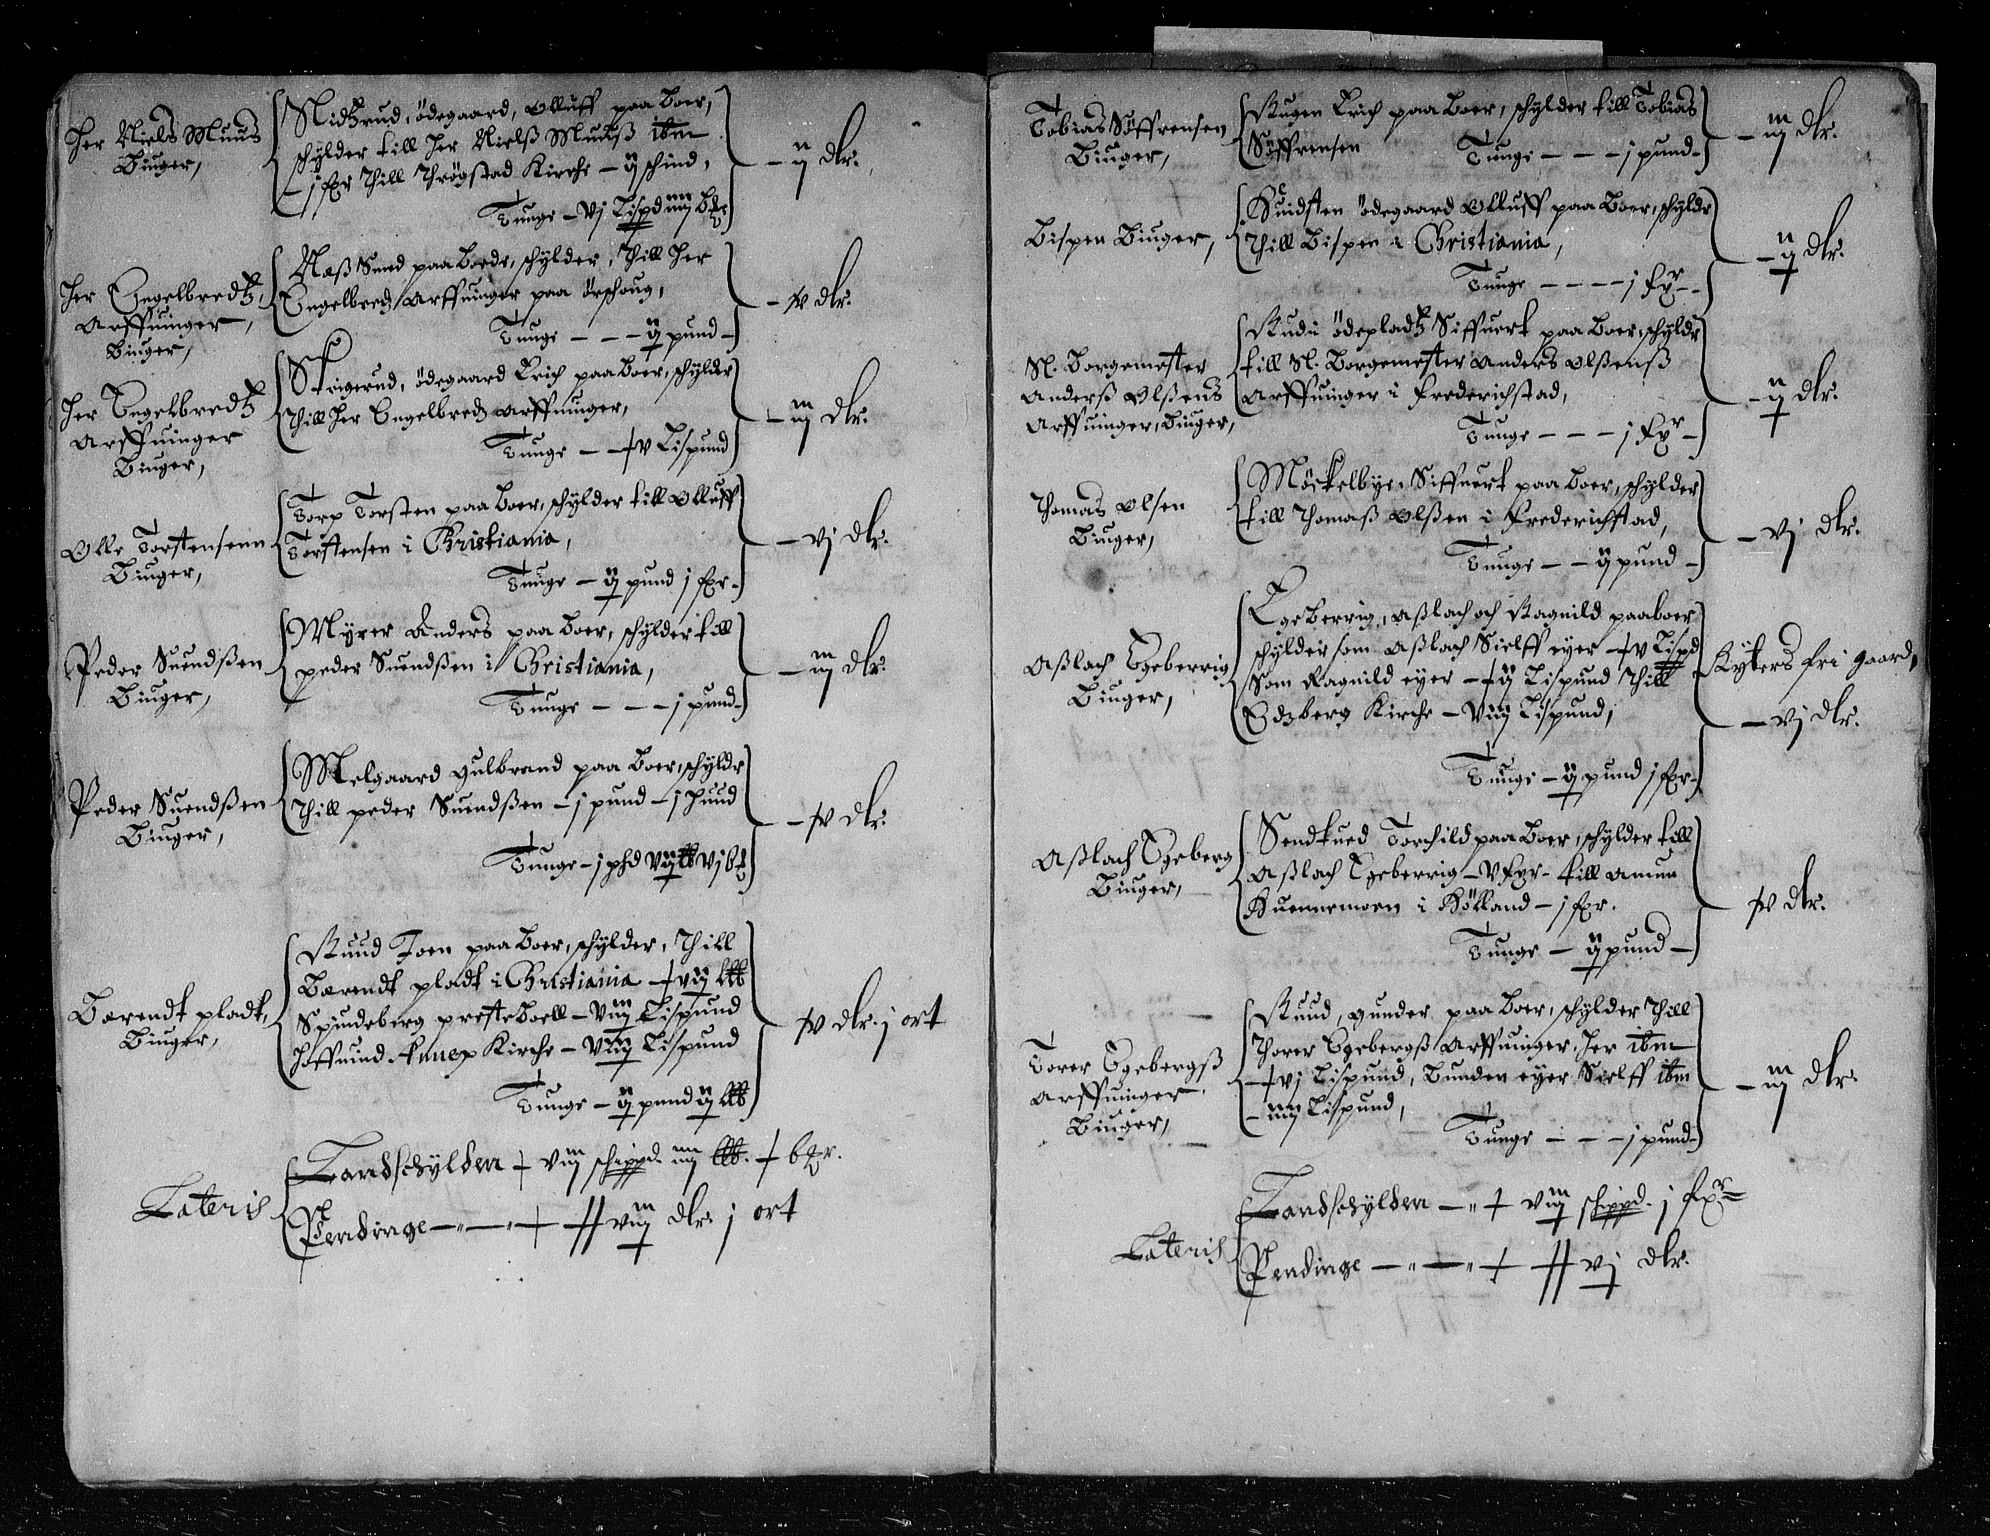 Her Niels Muus
Biuger,
Nidtzrud, ödegaard, Olluff paa boer,
schylder till Her Nielß Muuß ibm
– j fxr Thill Thrögstad Kirche – ij schind,
Tunge – vj Lispd iiij btr
– ij dlr.
Her Engelbredtz
Arffuinger,
Biuger,
Næß Suend paa boede, schylder, Thill Her
Engelbredz Arffuinger paa
Tunge – – – ij pund –
– iv dlr.
Her Engelbredtz
Arffuinger
Biuger,
Skigerud, ödegaard Erich paa boer, schylder
Thill Her Engelbredz Arffuinger,
Tunge – – + v Lispund
– iij dlr.
Olle Torstensenn
Biuger,
Torp Torsten paa boer, schylder till Olluff
Torstensen i Christiania,
Tunge – ij pund j fxr –
– vj dlr.
Peder Suendßen
Biuger,
Myrer Anders paa boer, schylder till
peder Suendßen i Christiania,
Tunge – – – j pund –
– iij dlr.
Peder Suendßen
Biuger,
Melgaard gulbrand paa boer, schyldr
Thill peder Suendßen – j pund – j huud
Tunge – j phd
– iv dlr.
Barendt pladt,
Biuger,
Ruud Joen paa boer, schylder, Thill
Barendt pladt i Christiania
Spindeberg presteboell – viij Lispund
Kirche – viij Lispund
Tunge – ij pund ij
iv dlr. j ort
Lateris
Landschylden + viij schippd. iiij
Pendinge viij dlr. j ort
Tobias Söffrensen
Biuger,
Rugen Erich paa boer, schylder till Tobias
Söffrensen Tunge – – – j pund –
– iij dlr.
Bispen Biuger,
ödegaard Olluff paa boer, schyldr
Thill Bispen i Christiania,
Tunge – – – – j fxr –
– ij dlr.
Sl. Borgemester
Anderß Olßens
Arffuinger, Biuger,
Rudi ödepladtz Siffuert paa boer, schyldr
till Sl. Borgemester Anders Olßenß
Arffuinger i Frederichstad,
Tunge – – – j fxr –
– ij dlr.
Thomas Olsen
Biuger,
Möckelbye, Siffuert paa boer, schylder
till Thomaß Olßen i Frederichstad,
Tunge – – ij pund –
– vj dlr.
Aßlach Egeberrig
Biuger,
Egeberrig, Aßlach och Ragnild paa boer
schylder som Aßlach Sielff eyer + v Lispd
Som Ragnild eyer – + ij Lispund Thill
Edzberg Kirche – viij Lispund,
Tunge – ij pund j fxr –
Rytters fri gaard,
– vj dlr.
Aßlach Egeberg
Biuger,
Torchild paa boer, schylder till
Aßlach Egeberrig – v fxr – till Amun
i Hölland – j fxr.
Tunge – ij pund –
iv dlr.
Torer Egebergß
Arffuinger
Biuger,
Ruud, gunder paa boer, schylder Thill
Thorer Egebergß Arffuinger, Her ibm
– + vj Lispund, Bunden eyer Sielff ibm
– iiij Lispund,
Tunge – – – j pund –
– iij dlr.
Lateris
Landschylden – + viij schippd. j fxr
Pendinge vj dlr.